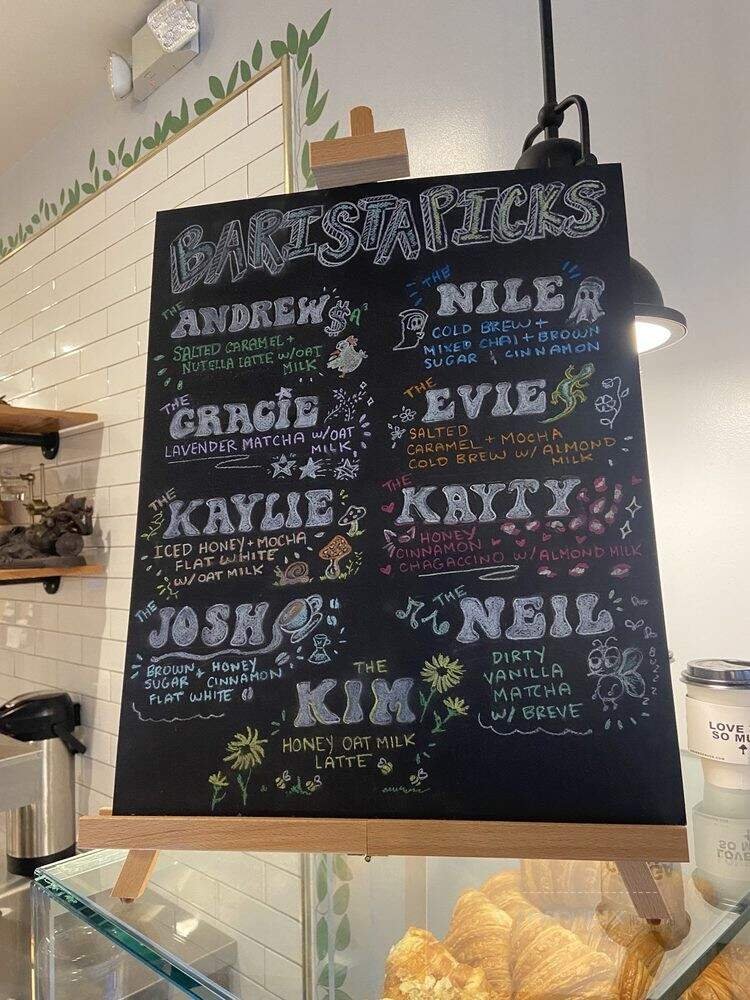 BARISTA PICKS
THE
ANDREW
SALTED CARAMEL +
NUTELLA LATTE W/OAT
MILK
THE
NILE
COLD BREW +
MIXED CHAI + BROWN
SUGAR + CINNAMON
THE
GRACIE
LAVENDER MATCHA W/OAT
MILK
THE
EVIE
SALTED
CARAMEL + MOCHA
COLD BREW W/ ALMOND
MILK
THE
KAYLIE
ICED HONEY + MOCHA
FLAT WHITE
W/OAT MILK
THE
KAYTY
HONEY
CINNAMON
CHAGACCINO W/ALMOND MILK
THE
JOSH
BROWN + HONEY
SUGAR CINNAMON
FLAT WHITE
THE
NEIL
DIRTY
VANILLA
MATCHA
W/ BREVE
THE
KIM
HONEY OAT MILK
LATTE
LOVE
SO MU